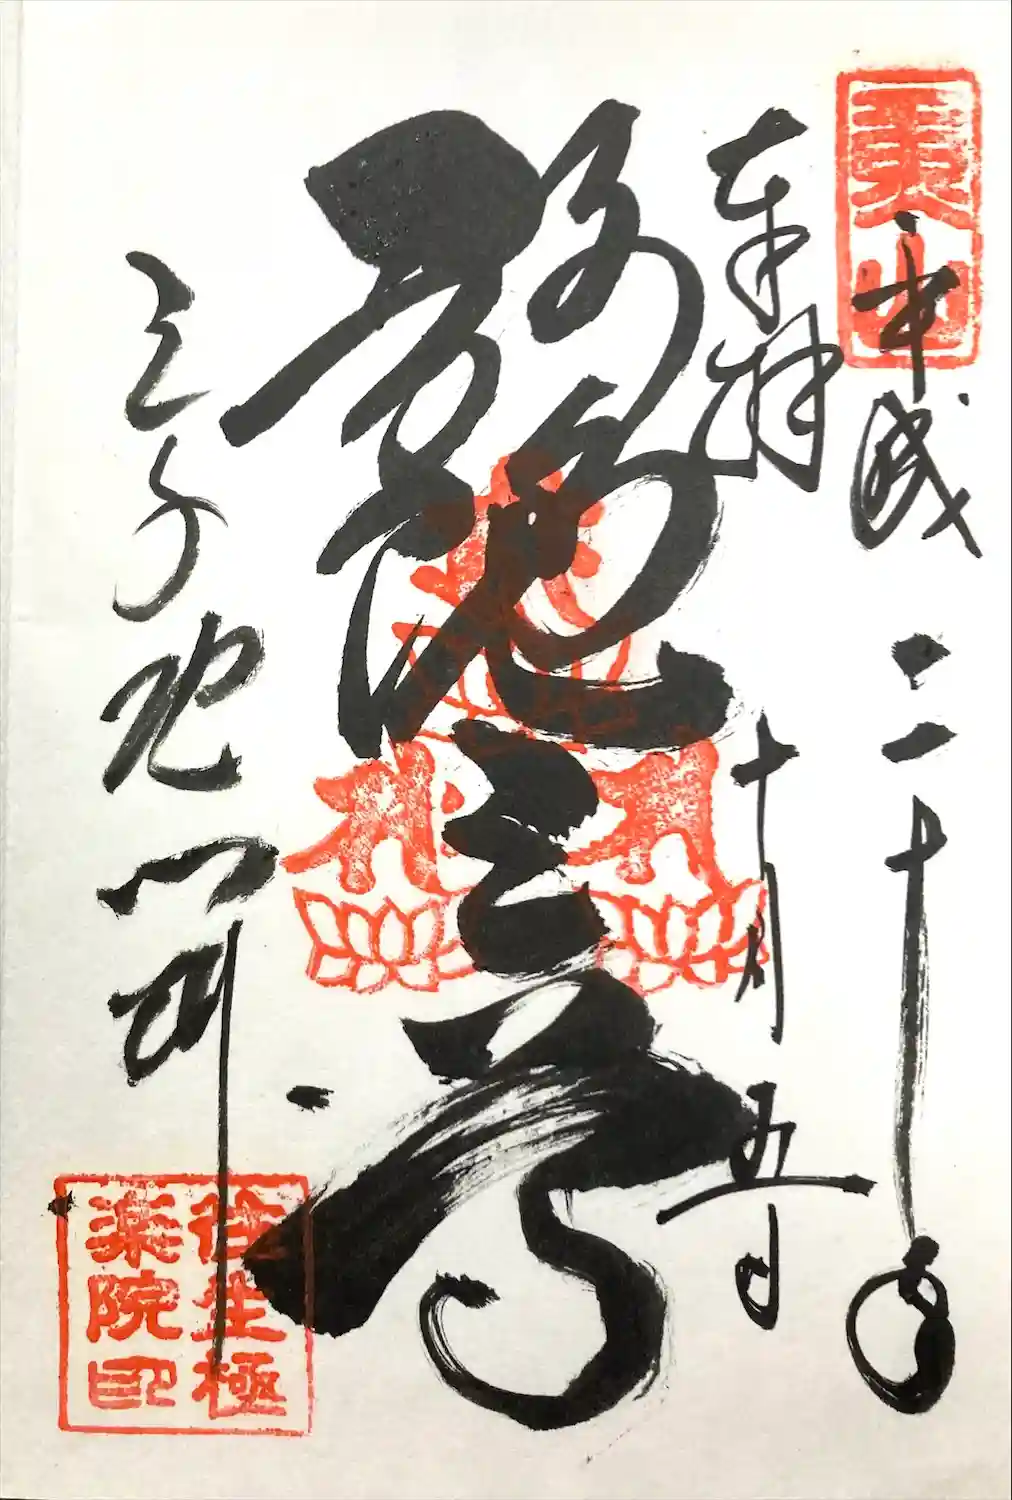 奉拝
平成二十年
十月五日
弥陀三尊
三千院門跡
往生極
楽院印